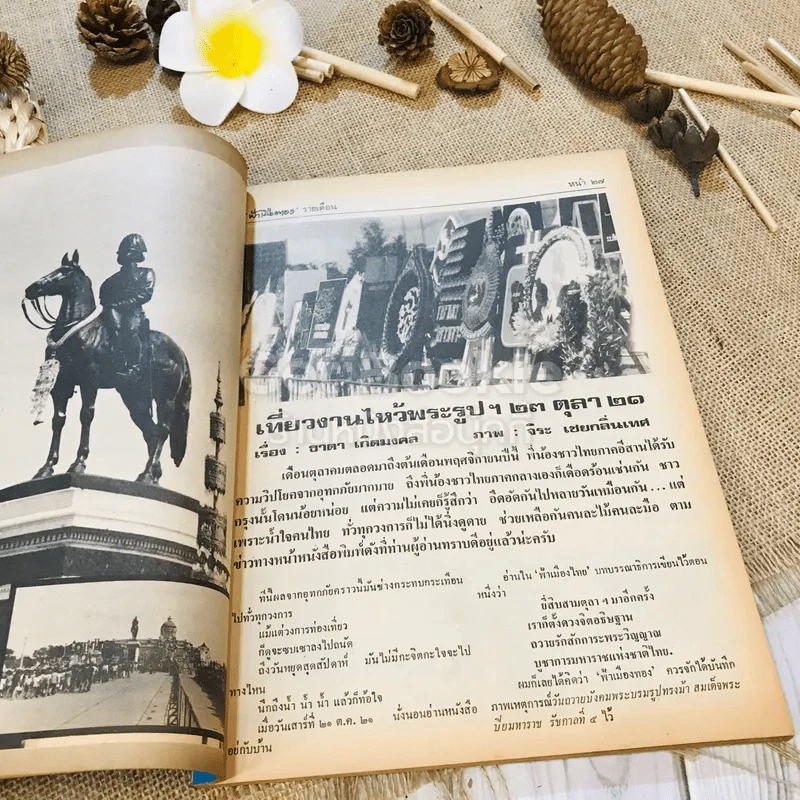 'ฟ้าเมืองทอง' รายเดือน
หน้า ๒๗
เที่ยวงานไหว้พระรูปฯ ๒๓ ตุลา ๒๑
เรื่อง : ธาดา เกิดมงคล ภาพ : จิระ เชยกลิ่นเทศ
เดือนตุลาคมตลอดมาถึงต้นเดือนพฤศจิกายนปีนี้ พี่น้องชาวไทยภาคอีสานได้รับ
ความวิปโยคจากอุทกภัยมากมาย ถึงพี่น้องชาวไทยภาคกลางเองก็เดือดร้อนเช่นกัน ชาว
กรุงนั้นโดนน้อยหน่อย แต่ความไม่เคยก็รู้สึกว่า อึดอัดกันไปหลายวันเหมือนกัน... แต่
เพราะน้ำใจคนไทย ทั่วทุกวงการก็ไม่ได้นิ่งดูดาย ช่วยเหลือกันคนละไม้คนละมือ ตาม
ข่าวทางหน้าหนังสือพิมพ์ดังที่ท่านผู้อ่านทราบดีอยู่แล้วน่ะครับ
ทีนี้ผลจากอุทกภัยคราวนี้มันช่างกระทบกระเทือน
ไปทั่วทุกวงการ
แม้แต่วงการท่องเที่ยว
ก็ดูจะซบเซาลงไปถนัด
ถึงวันหยุดสุดสัปดาห์ มันไม่มีกะจิตกะใจจะไป
ทางไหน
นึกถึงน้ำ น้ำ น้ำ แล้วก็ท้อใจ
เมื่อวันเสาร์ที่ ๒๑ ต.ค. ๒๑ นั่งนอนอ่านหนังสือ
อยู่กับบ้าน
อ่านใน 'ฟ้าเมืองไทย' บทบรรณาธิการเขียนไว้ตอน
หนึ่งว่า
ยี่สิบสามตุลา ฯ มาอีกครั้ง
เราก็ตั้งดวงจิตอธิษฐาน
ถวายรักสักการะพระวิญญาณ
บูชาการมหาราชแห่งชาติไทย.
ผมก็เลยได้คิดว่า 'ฟ้าเมืองทอง' ควรจักได้บันทึก
ภาพเหตุการณ์วันถวายบังคมพระบรมรูปทรงม้า สมเด็จพระ
ปิยมหาราช รัชกาลที่ ๕ ไว้